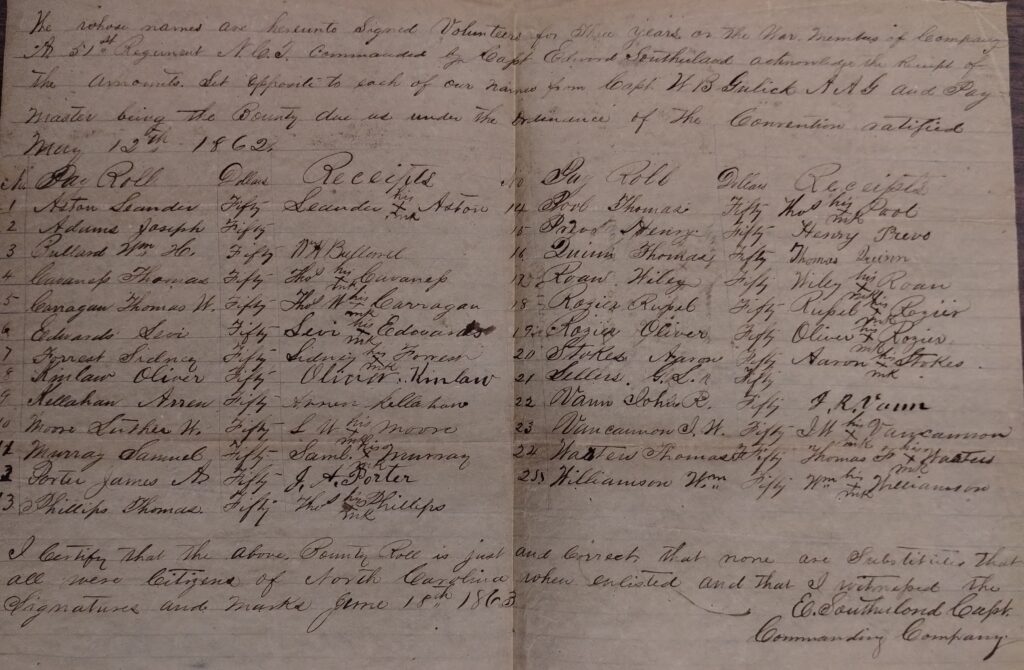 We whose names are hereunto Signed Volunteers for three years or the War. Members of Company
A 51st Regiment N.C.T. Commanded by Capt. Edward Southerland acknowledge the Receipt of
the amounts. Set opposite to each of our names from Capt. W B Gulick A A G and Pay-
master being the Bounty due us under the Ordinance of the Convention ratified
May 12th 1862.
No. Pay Roll Dollars Receipts
1 Aston Leander Fifty Leander his x mrk Aston
2 Adams Joseph Fifty
3 Bullard Wm H. Fifty W H Bullard
4 Cavaness Thomas Fifty Thos his x mk Cavaness
5 Carragan Thomas W. Fifty Thos W his x mk Carragan
6 Edwards Levi Fifty Levi his x mk Edwards
7 Forrest Sidney Fifty Sidney his x mk Forrest
8 Kinlaw Oliver Fifty Oliver Kinlaw
9 Kellahan Arren Fifty Arren Kellahan
10 Moore Luther W. Fifty L W his x mk Moore
11 Murray Samuel Fifty Saml. his x mk Murray
2 Porter James A Fifty J. A. Porter
13 Phillips Thomas Fifty Thos his x mk Phillips
No Pay Roll Dollars Receipts
14 Pool Thomas Fifty Thos his x mk Pool
15 Prevo Henry Fifty Henry Prevo
16 Quinn Thomas Fifty Thomas Quinn
17 Roan Wiley Fifty Wiley his x mk Roan
18 Rozier Rupel Fifty Rupel his x mk Rozier
19 Rozier Oliver Fifty Oliver his x mk Rozier
20 Stokes Aaron Fifty Aaron his x mk Stokes
21 Sellers. G. L. Fifty
22 Vann John R. Fifty J. R. Vann
23 Vancannon I. W. Fifty I W his x mk Vancannon
24 Watters Thomas F Fifty Thomas F his x mk Watters
25 Williamson Wm Fifty Wm his x mk Williamson
I Certify that the above Bounty Roll is just and Correct that none are Substitutes that
all were Citizens of North Carolina when enlisted and that I witnessed the
Signatures and marks June 18th 1863
E. Southerland Capt.
Commanding Company